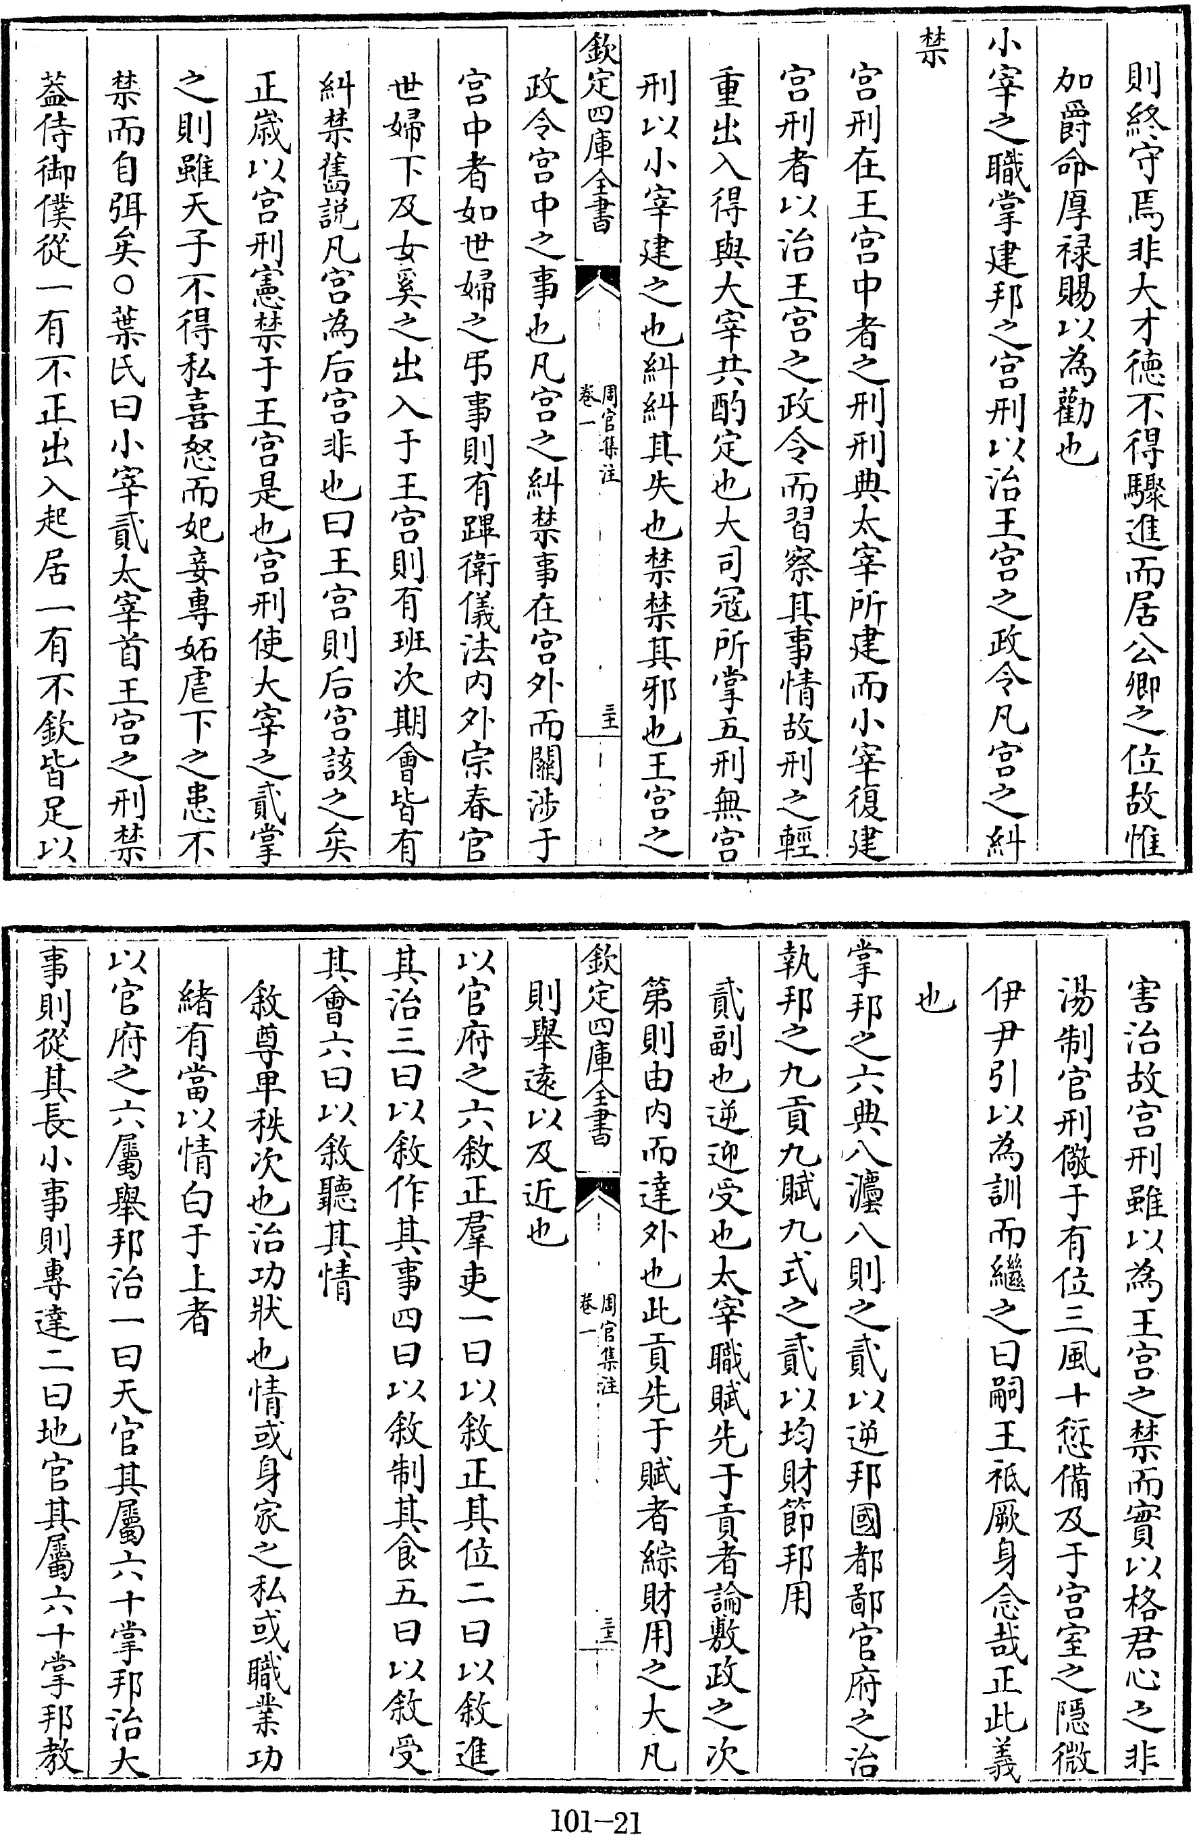 則終守焉非大才德不得驟進而居公卿之位故惟
加爵命厚禄賜以為勸也
小宰之職掌建邦之宫刑以治王宫之政令凡宫之糾
禁
宫刑在王宫中者之刑刑典太宰所建而小宰復建
宫刑者以治王宫之政令而習察其事情故刑之輕
重出入得與大宰共酌定也大司冦所掌五刑無宫
刑以小宰建之也糾糾其失也禁禁其邪也王宫之
欽定四庫全書
周官集注
卷一
三十
政令宫中之事也凡宫之糾禁事在宫外而關涉于
宫中者如世婦之弔事則有蹕衛儀法内外宗春官
世婦下及女奚之出入于王宫則有班次期會皆有
糾禁舊說凡宫為后宫非也曰王宫則后宫該之矣
正歲以宫刑憲禁于王宫是也宫刑使大宰之貳掌
之則雖天子不得私喜怒而妃妾專妬虐下之患不
禁而自弭矣○葉氏曰小宰貳太宰首王宫之刑禁
葢侍御僕從一有不正出入起居一有不欽皆足以
害治故宫刑雖以為王宫之禁而實以格君心之非
湯制官刑儆于有位三風十愆備及于宫室之隱微
伊尹引以為訓而繼之曰嗣王祗厥身念哉正此義
也
掌邦之六典八灋八則之貳以逆邦國都鄙官府之治
執邦之九貢九賦九式之貳以均財節邦用
貳副也逆迎受也太宰職賦先于貢者論敷政之次
第則由内而達外也此貢先于賦者綜財用之大凡
欽定四庫全書
周官集注
卷一
三十一
則舉遠以及近也
以官府之六敘正羣吏一曰以敘正其位二曰以敘進
其治三曰以敘作其事四曰以敘制其食五曰以敘受
其會六曰以敘聽其情
敘尊卑秩次也治功狀也情或身家之私或職業功
緒有當以情白于上者
以官府之六屬舉邦治一曰天官其屬六十掌邦治大
事則從其長小事則專達二曰地官其屬六十掌邦教
101-21